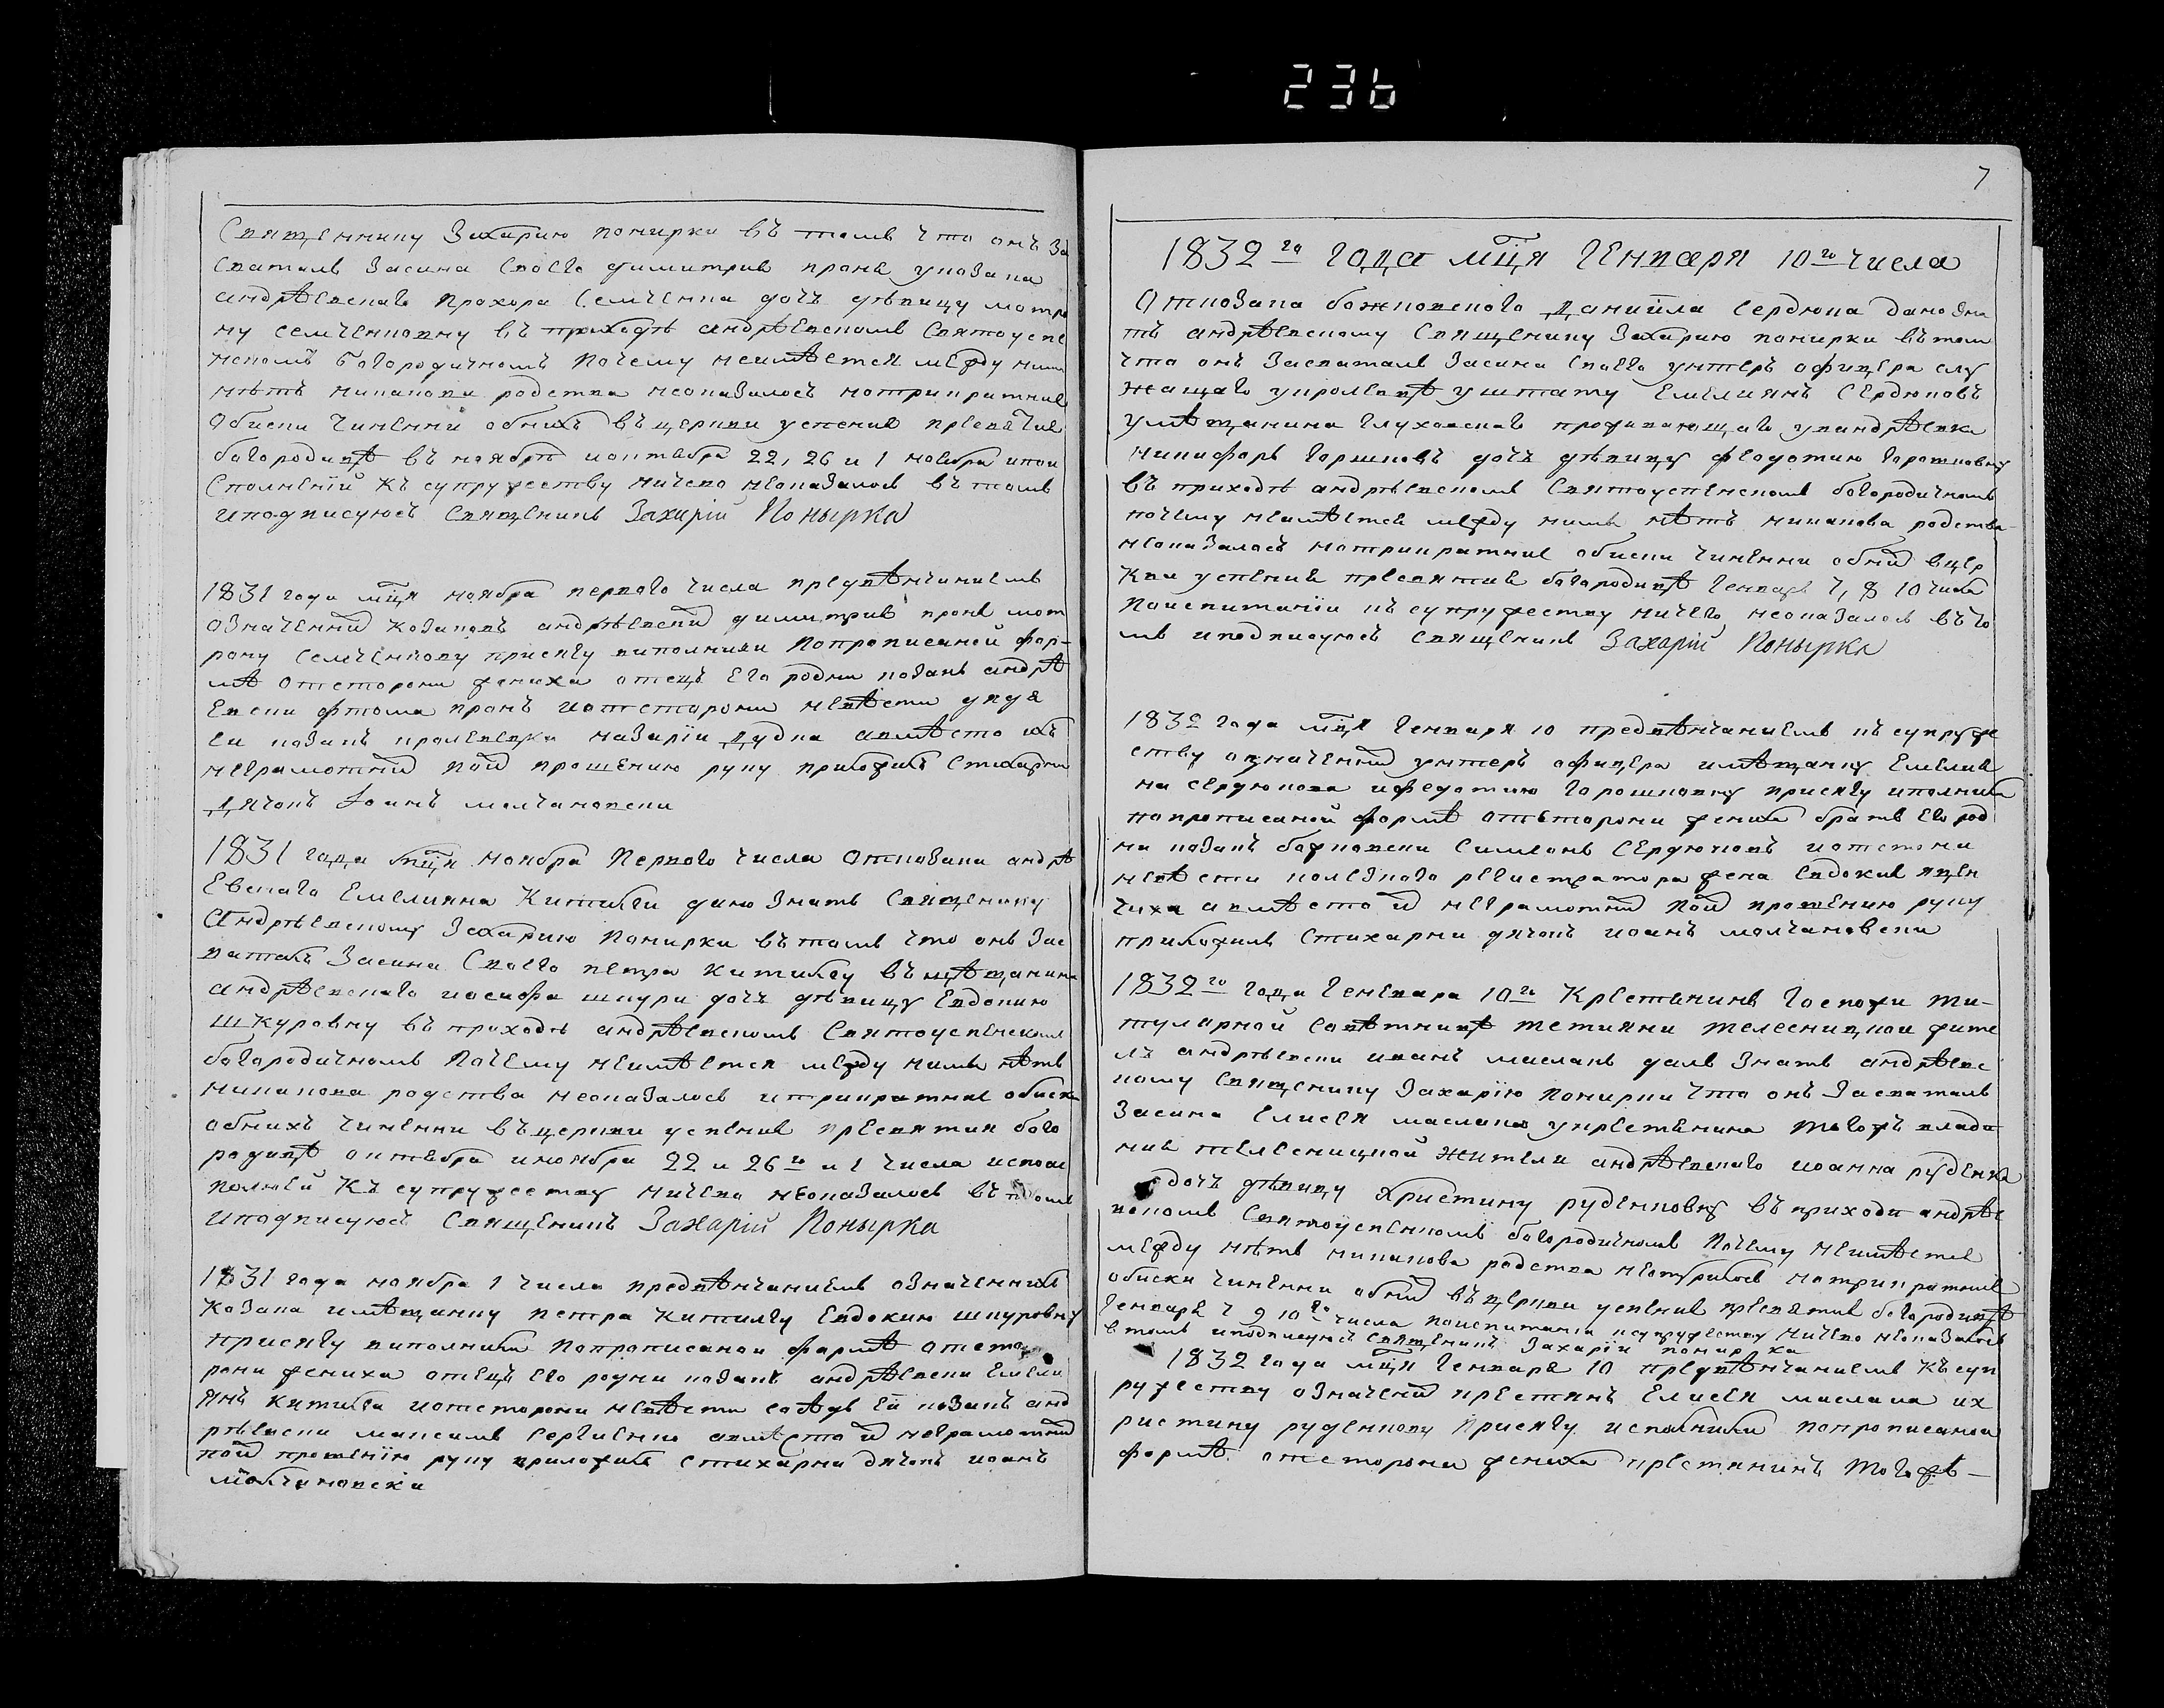 236
Священнику Захарію понирки въ томъ что онъ За
сваталъ Засина своего димитрия проня уковака
андрѣевскаго прохора Семченка дочъ дѣвицу мотро
ну семченковну въ приходѣ андрѣевскомъ Святоуспе
нскомъ богородичномъ Почему неимѣется между ними
нѣтъ никакови родства неоказалось и
обиски чиненни обнихъ въ церкви успения пресвятия
богородицѣ въ ноябрѣ иоктября 22, 26 и 1 ноября
къ супружеству ничево неоказалось въ томъ
иподписуюсъ Священикъ Захарій Понырка
1831 года мця ноября первого числа предвѣнчаниемъ
означенній козаковъ андрѣевскій димитрия проня мот
рону семченкову присягу виполнили попрописаной фор-
мѣ отсторони жениха отецъ его родни козакъ андрѣ
евски фтома пронь иотсторони невѣсти дядя
еи козакъ кролевецки назарій дудка авмѣсто ихъ
неграмотній поій прошению руку приложилъ Стихарни
Дячокъ Іоанъ молчановски
1831 года мця ноября Первого числа отковака андрѣ
Евского Емелияна Китиги даю знать Священику
Андрѣевскому Захарию понирки въ томъ что онъ Зас
ваталъ Засина Своего петра китигу въ мѣщанина
андрѣевскаго иосифа шкури дочъ дѣвицу Евдокию
шкуровну въ приходѣ андрѣевскомъ Святоуспенскомъ
богородичномъ Почему неимѣется между ними нѣтъ
никакова родства неоказалось итрикратние обиски
обнихъ чиненни въ церкви успения пресвятия бого
родицѣ октября иноября 22 и 26го и 1 числа
къ супружеству ничево неоказалось въ томъ
иподписуюсъ Священикъ Захарій Понырка
1831 года ноября 1 числа предвѣнчаниемъ означенних
козака имѣщанку петра китигу Евдокию шкуровну
присягу виполнили попрописаной формѣ отсто
рони жениха отецъ его родни козакъ андрѣевски Емели
янъ китига иотсторони невѣсти сосѣдъ ей козакъ анд
рѣевски максимъ сергиенко авмѣсто ій неграмотній
поій прошенію руку приложилъ стихарни дячокъ иоанъ
молчановски
7
1832го года мця Генваря 10го числа
Откозака божковского Даниіла Сердюка дано зна
ть андрѣевскому Священику Захарию понирки въ том
что онъ Засваталъ Засина своего унтеръ офицера слу
жащаго укролевцѣ уштату Емелиянъ Сердюковъ
умѣщанина глуховскаго проживающаго уандрѣевки
никифоръ горшковъ дочъ дѣвицу федотию горошковну
въ приходѣ андрѣевскомъ Святоуспенскомъ богородичномъ
почему неимѣется между ними нѣтъ никакова родства
неоказалось нотрикратние обиски чиненни обній вцер
кви успения пресвятия богородицѣ Генваря 7, 8 10 числа
Поиспитаніи къ супружеству ничего неоказалось въ то
мъ иподписуюсъ Священикъ Захарій Понырка
1832 года мця Генваря 10 предвѣнчаниемъ къ супруже
ству означенній унтеръ офицера имѣщанку Емелия
на сердюкова ифедотию горошковну присягу иполнили
попрописаной формѣ отъсторони жениха братъ его род
ни козакъ божковски Симеонъ Сердюковъ иотсторни
невѣсти колезкого регистратора жена евдокия яцен
чиха авмѣсто ій неграмотній поій прошению руку
приложилъ стихарни дячокъ иоанъ молчановски
1832го года Генваря 10го Крестянинъ Госпожи ти-
тулярной совѣтницѣ тетияни телесницкой жите
ль андрѣевски иванъ маслакъ далъ знать андрѣевс
кому священику Захарію понирки что онъ Засваталъ
Засина Елисея маслака укрестянина тогожъ влади
ния телесницкой жителя андрѣевского иоанна руденка
дочъ дѣвицу христину руденковну въ приходи андрѣе
вскомъ Святоуспенскомъ богородичномъ Почему неимѣетея
между нѣтъ никакова родства неотрилось нотрикратние
обиски чиненни обній въ церкви успения пресвятия богородицѣ
Генваря 7 9 10го числа поиспитаніи ксупружеству ничево неоказалось
втомъ иподписуюсъ священикъ Захаріи понирка
1832 года мця Генваря 10 предвѣнчаниемъ Къ суп
ружеству означеній крестянъ Елисея маслака их
ристину руденкову присягу исполнили попрописаной
формѣ отсторони жениха крестянинъ тогожъ-